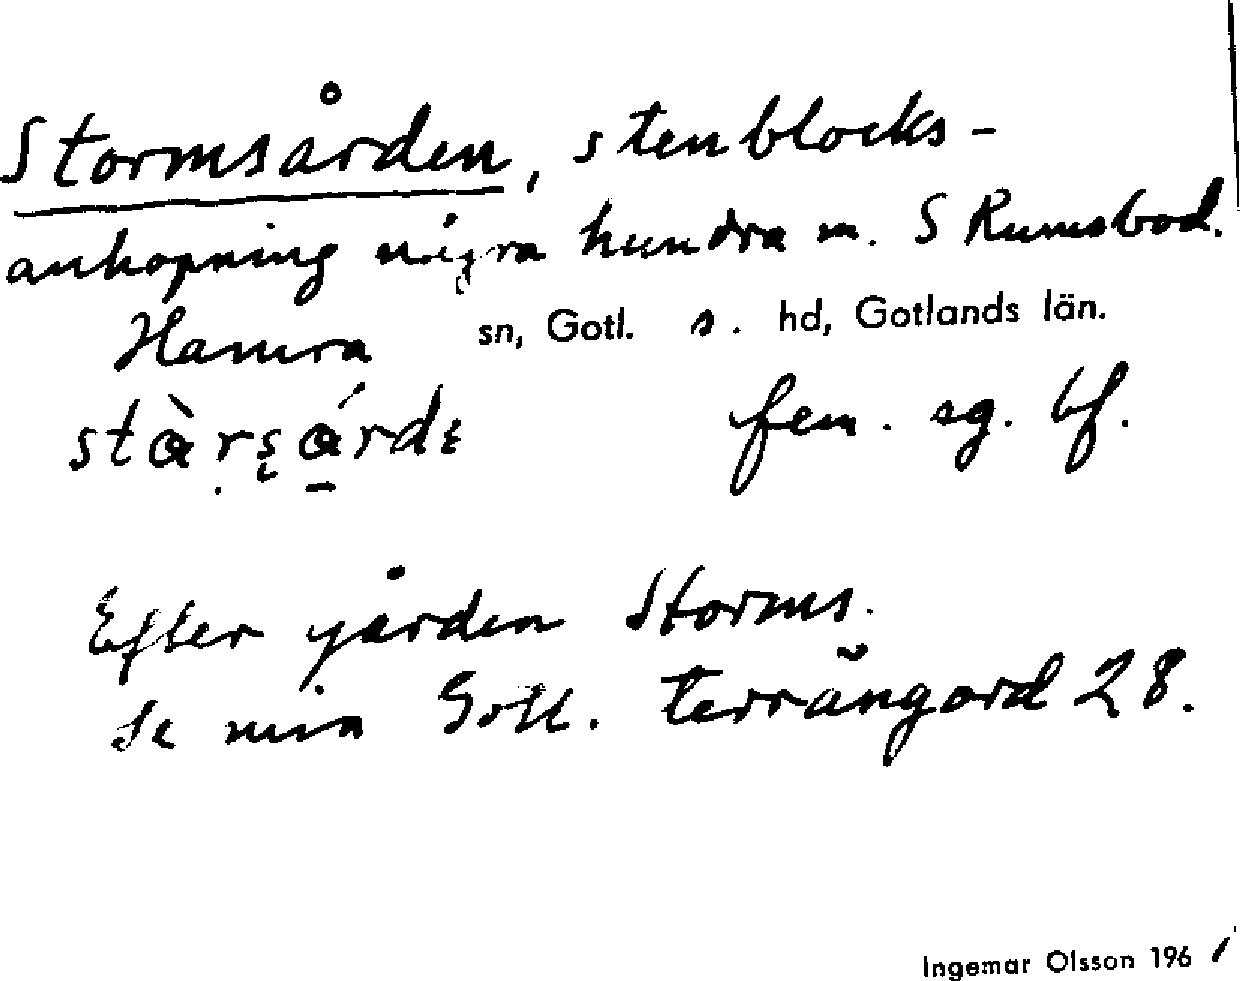 Stormsården, stenblocks-
anhopning några hundra m. S Rumsbod.
Hamra sn, Gotl. s. hd, Gotlands län.
fem. sg. bf.
Efter gården Storms.
Se min Gotl. terrängord 28.
Ingemar Olsson 1961